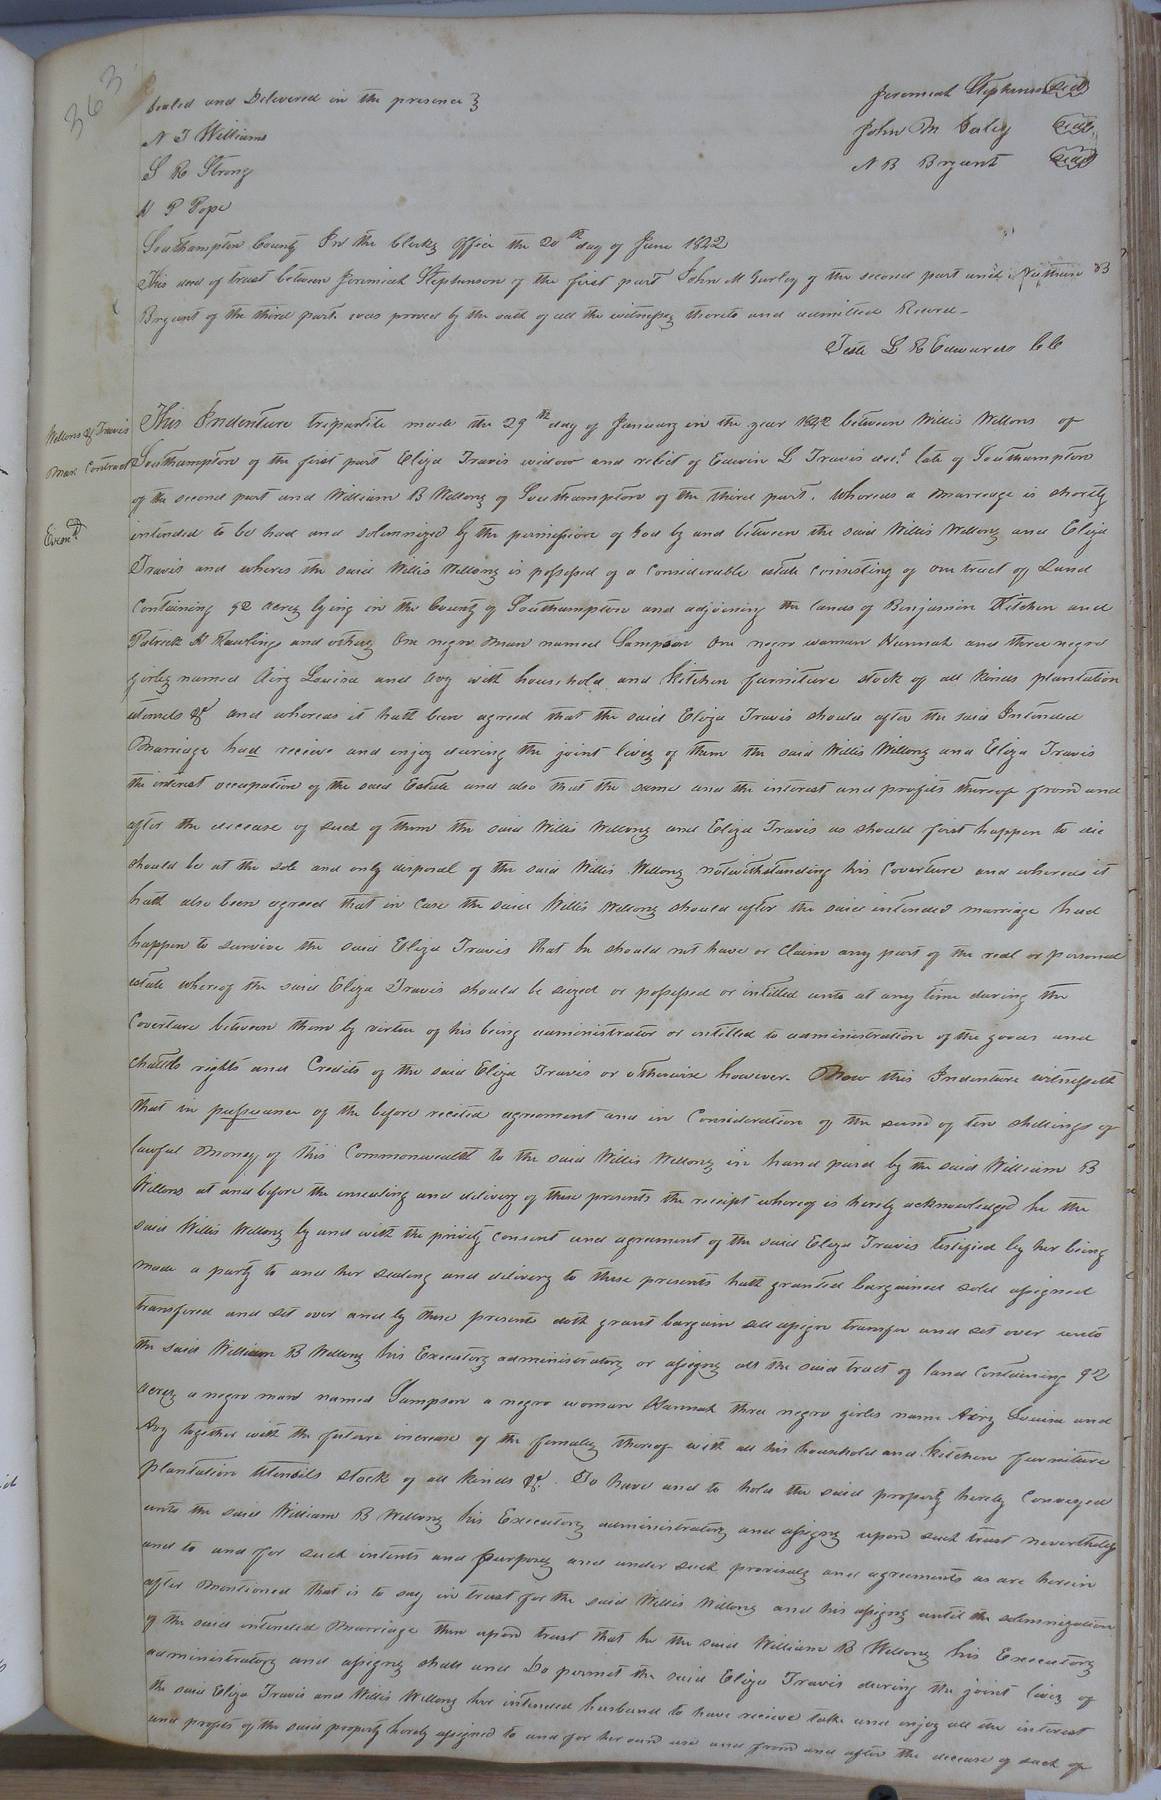 363
Sealed and Delivered in the presence } Jeremiah Stephenson (Seal)
N T Williams John M Gurley (Seal)
S R Strong N B Bryant (Seal)
H P Pope
Southampton County In the Clerks Office the 20th day of June 1842
This deed of trust between Jeremiah Stephenson of the first part John M Gurley of the second part and Nathan B
Bryant of the third part was proved by the oath of all the witnesses thereto and admitted Record -
Teste L R Edwards CC
Wellons & Travis
Mar. Contract
Examd.
This Indenture tripartite made the 29th day of January in the year 1842 between Willis Wellons of
Southampton of the first part Eliza Travis widow and relict of Edwin L Travis decd. late of Southampton
of the second part and William B Wellons of Southampton of the third part. Whereas a marriage is shortly
intended to be had and solemnized by the permission of God by and between the said Willis Wellons and Eliza
Travis and wheras the said Willis Wellons is possessed of a Considerable estate Consisting of one tract of Land
Containing 92 acres lying in the County of Southampton and adjoining the lands of Benjamin Kitchen and
Patrick H Rawlings and others One negro man named Sampson One negro woman Hannah and three negro
girls named Airy Louisa and Avy with household and Kitchen furniture stock of all kinds plantation
utensils &c and whereas it hath been agreed that the said Eliza Travis should after the said Intended
Marriage had receive and enjoy during the joint lives of them the said Willis Wellons and Eliza Travis
the interest occupation of the said Estate and also that the same and the interest and profits thereof from and
after the decease of such of them the said Willis Wellons and Eliza Travis as should first happen to die
should be at the sole and only disposal of the said Willis Wellons notwithstanding his Coverture and whereas it
hath also been agreed that in Case the said Willis Wellons should after the said intended marriage had
happen to survive the said Eliza Travis that he should not have or Claim any part of the real or personal
estate whereof the said Eliza Travis should be seized or possessed or intitled unto at any time during the
Coverture between them by virtue of his being administrator or intitled to administration of the goods and
chattels rights and Credits of the said Eliza Travis or otherwise however. Now this Indenture witnesseth
that in pursuance of the before recited agreement and in Consideration of the sum of ten shillings of
lawful Money of this Commonwealth to the said Willis Wellons in hand paid by the said William B
Wellons at and before the ensealing and delivery of these presents the receipt whereof is hereby acknowledged he the
said Willis Wellons by and with the privity consent and agreement of the said Eliza Travis testified by her being
made a party to and her sealing and delivery to these presents hath granted bargained sold assigned
transfered and set over and by these presents doth grant bargain sell assign transfer and set over unto
the said William B Wellons his Executors administrators or assigns all the said tract of land Containing 92
acres a negro man named Sampson a negro woman Hannah three negro girls name Airy Louisa and
Avy together with the future increase of the females thereof with all his household and kitchen furniture
plantation Utensils stock of all kinds &c. To have and to hold the said property hereby Conveyed
unto the said William B Wellons his Executors administrators and assigns upon such trust nevertheless
and to and for such intents and purposes and under such provisoes and agreements as are herein
after Mentioned that is to say in trust for the said Willis Wellons and his assigns until the solemnization
of the said intended Marriage then upon trust that he the said William B Wellons his Executors
administrators and assigns shall and Do permit the said Eliza Travis during the joint lives of
the said Eliza Travis and Willis Wellons her intended husband to have recieve take and enjoy all the interest
and profits of the said property hereby assigned to and for her own use and from and after the decease of such of